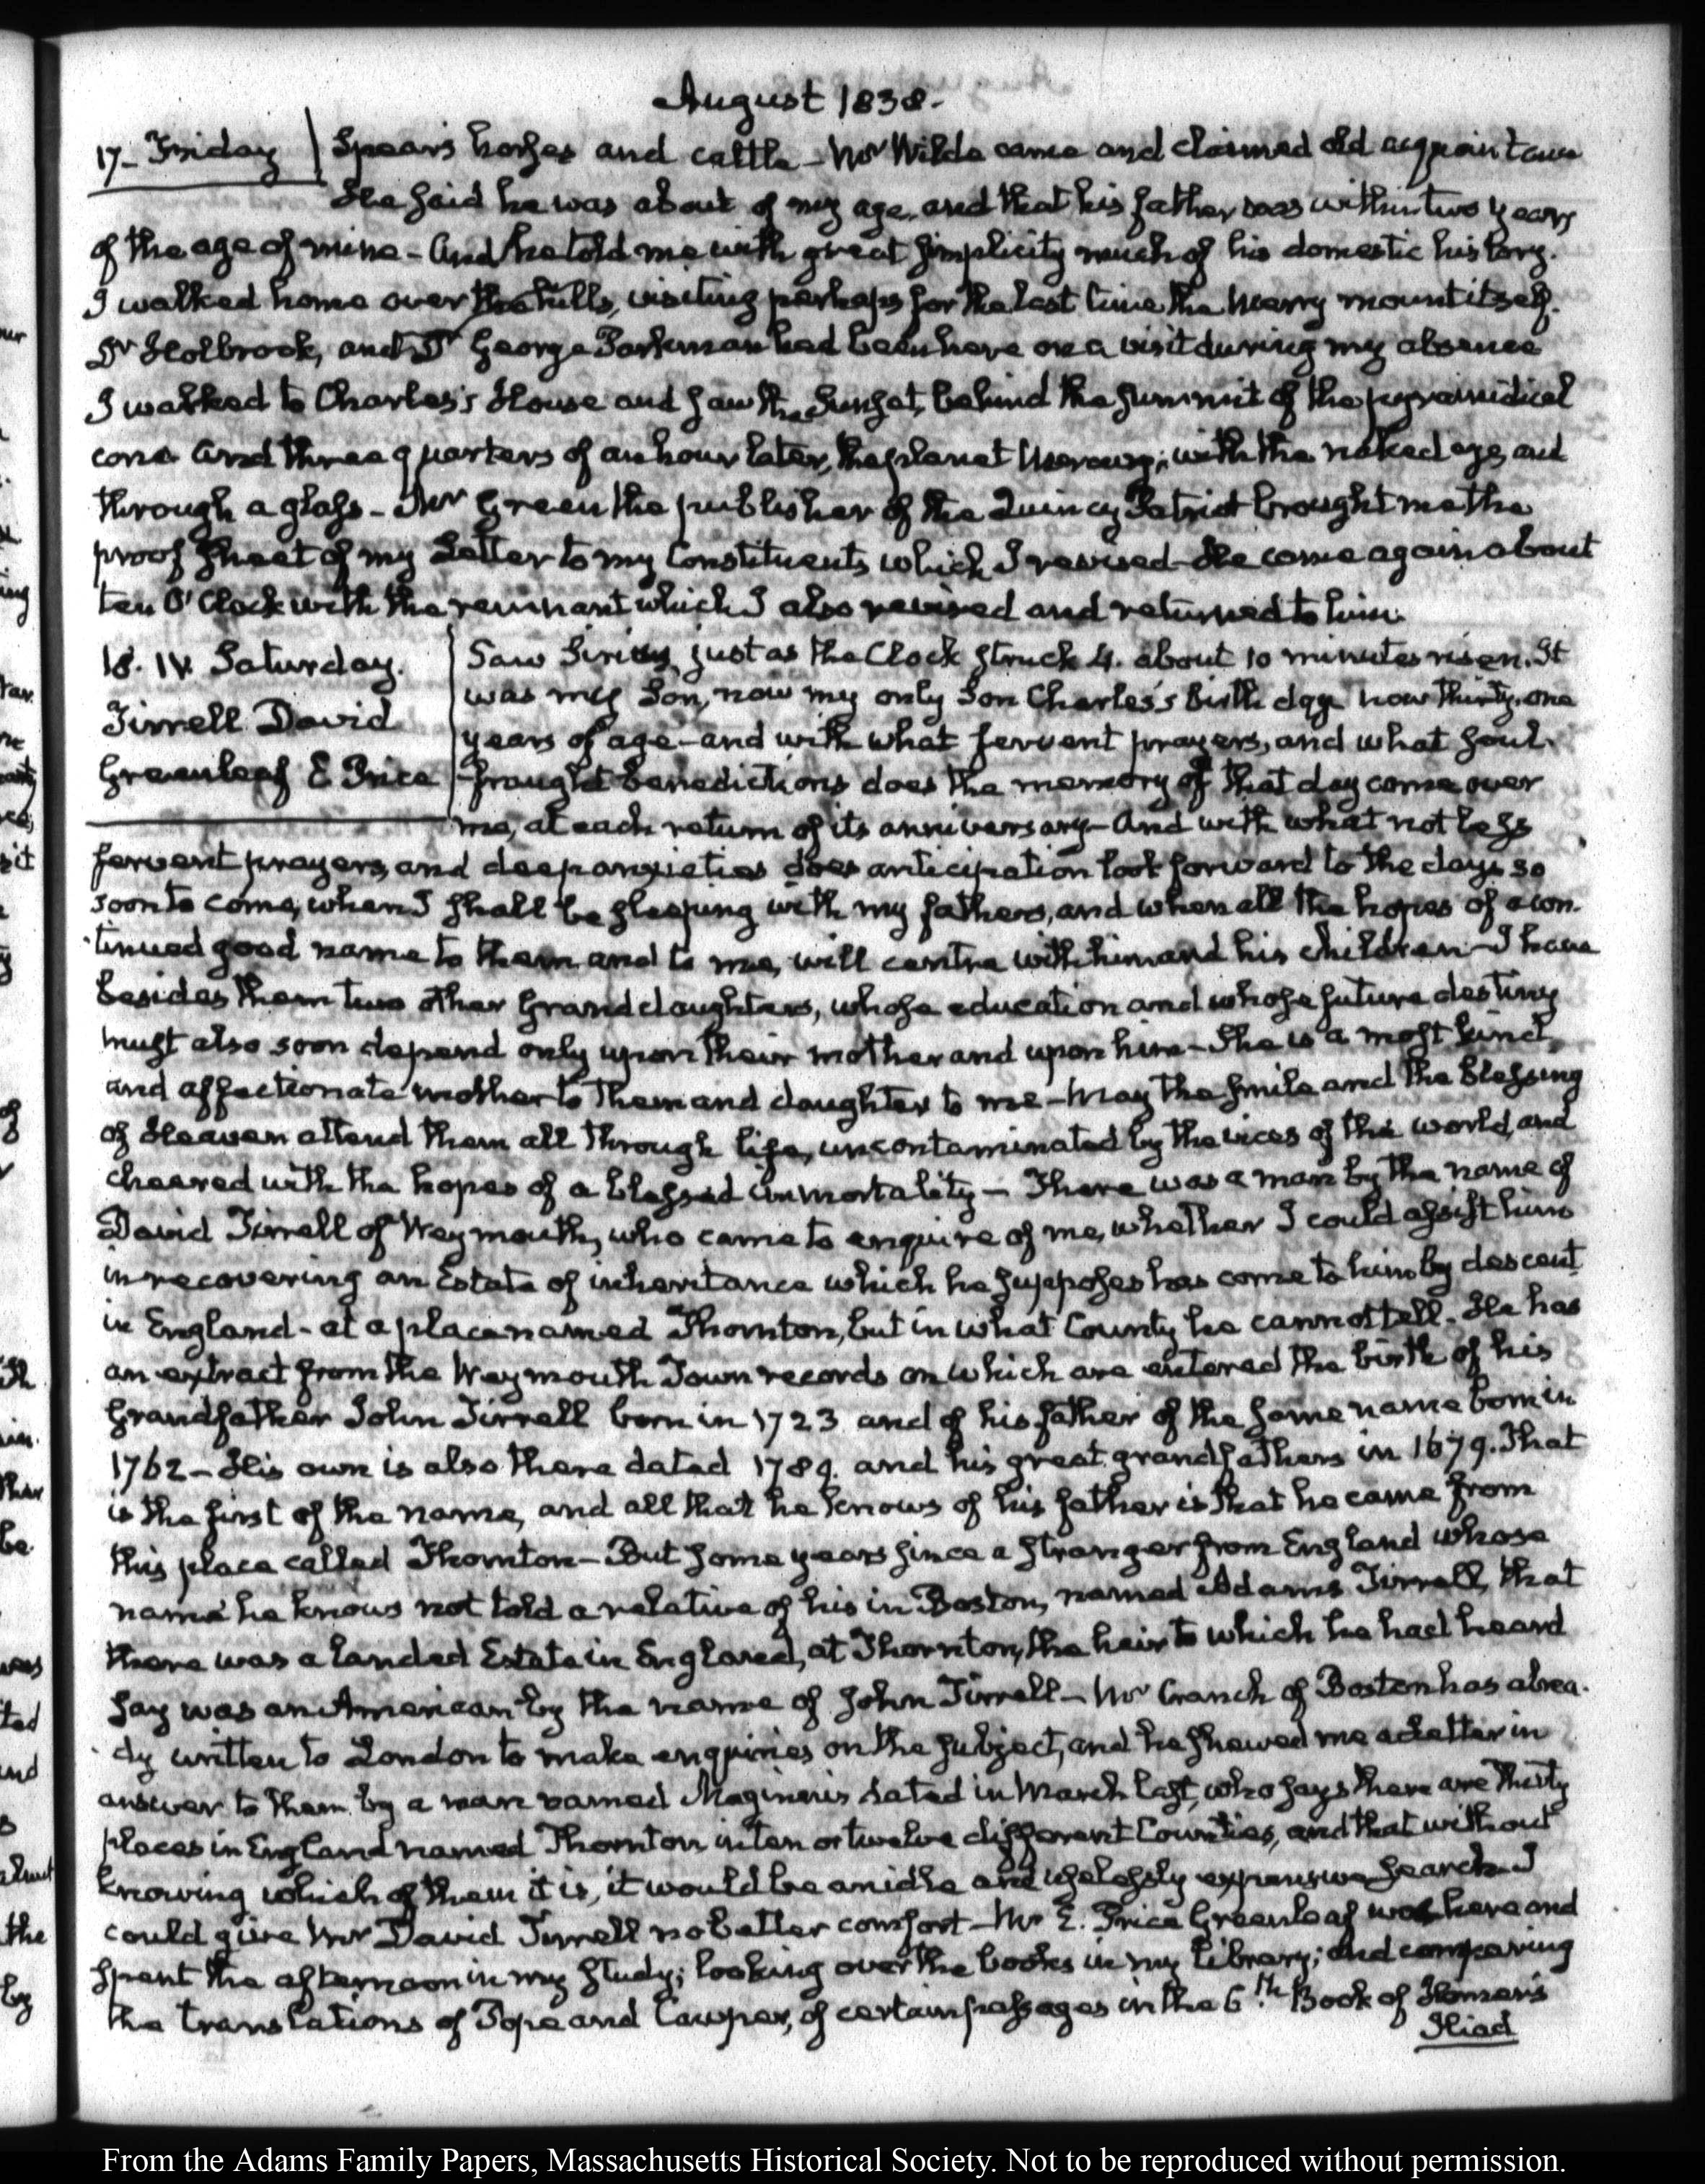 August 1838.
17. Friday
Spear's horses and cattle – Mr Wilde came and claimed old acquaintance
He said he was about of my age, and that his father was within two years
of the age of mine – And he told me with great simplicity much of his domestic history.
I walked home over the hills, visiting perhaps for the last time the Merry mount itself.
Dr Holbrook, and Dr George Parkman had been here on a visit during my absence
I walked to Charles's House and saw the Sunset, behind the summit of the pyramidical
cone. And three quarters of an hour later, the planet Mercury; with the naked eye, and
through a glass – Mr Green the publisher of the Quincy Patriot brought me the
proof sheet of my Letter to my Constituents which I revised – He came again about
ten O'Clock with the remnant which I also revised and returned to him.
18. IV. Saturday.
Tirrell David
Greenleaf E Price
Saw Sirius, just as the Clock struck 4. about 10 minutes risen. It
was my Son, now my only Son Charles's birth day now thirty-one
years of age – and with what fervent prayers, and what soul-
fraught benedictions does the memory of that day come over
me, at each return of its anniversary – And with what not less
fervent prayers, and deep anxieties does anticipation look forward to the days so
soon to come, when I shall be sleeping with my fathers, and when all the hopes of a con-
tinued good name to them and to me, will centre with him and his children – I have
besides them two other Grand daughters, whose education and whose future destiny
must also soon depend only upon their mother and upon him – She is a most kind,
and affectionate mother to them and daughter to me – May the smile and the blessing
of Heaven attend them all through life, uncontaminated by the vices of the world, and
cheered with the hopes of a blessed immortality – There was a man by the name of
David Tirrell of Weymouth, who came to enquire of me, whether I could assist him
in recovering an Estate of inheritance which he supposes has come to him by descent
in England – at a place named Thornton, but in what County he cannot tell. He has
an extract from the Weymouth Town records on which are entered the birth of his
Grandfather John Tirrell born in 1723 and of his father of the same name born in
1762 – His own is also there dated 1789. and his great grandfathers in 1679. That
is the first of the name, and all that he knows of his father is that he came from
this place called Thornton – But some years since a stranger from England whose
name he knows not told a relative of his in Boston, named Adams Tirrell, that
there was a landed Estate in England, at Thornton, the heir to which he had heard
say was an American by the name of John Tirrell – Mr Cranch of Boston has alrea-
dy written to London to make enquiries on the subject, and he shewed me a Letter in
answer to them by a man named Maginnis dated in March last, who says there are thirty
places in England named Thornton in ten or twelve different Counties, and that without
knowing which of them it is, it would be an idle and uselessly expensive search. I
could give Mr David Tirrell no better comfort – Mr E. Price Greenleaf was here and
spent the afternoon in my study; looking over the books in my library; and comparing
the translations of Pope and Cowper, of certain passages in the 6th Book of Homer's
Iliad
From the Adams Family Papers, Massachusetts Historical Society. Not to be reproduced without permission.